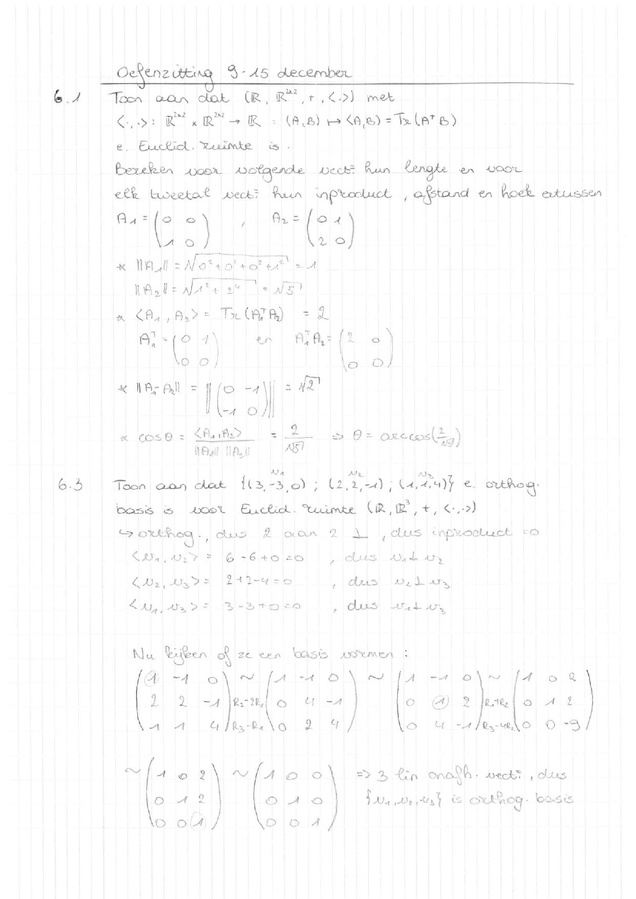 Oefenzitting 9-15 december
6.1 Toon aan dat (ℝ, ℝ²ˣ², +, <·,·>) met
<·,·> : ℝ²ˣ² × ℝ²ˣ² → ℝ : (A,B) ↦ <A,B> = Tr(AᵀB)
e. Euclid. ruimte is.
Bereken voor volgende vect: hun lengte en voor
elk tweetal vect: hun inproduct, afstand en hoek ertussen
A₁ = (0 0 , A₂ = (0 1
1 0) 2 0)
* ||A₁|| = √(0² + 0² + 0² + 1²) = 1
||A₂|| = √(1² + 2²) = √5
* <A₁, A₂> = Tr(A₁ᵀA₂) = 2
A₁ᵀ = (0 1 en A₁ᵀA₂ = (2 0
0 0) 0 0)
* ||A₁-A₂|| = ||(0 -1 || = √2
-1 0)
* cosθ = <A₁,A₂> / ||A₁|| ||A₂|| = 2/√5 ⇒ θ = arccos(2/√5)
v₁ v₂ v₃
6.3 Toon aan dat {(3,-3,0) ; (2,2,-1) ; (1,1,4)} e. orthog.
basis is voor Euclid. ruimte (ℝ, ℝ³, +, <·,·>)
↳ orthog., dus 2 aan 2 ⊥, dus inproduct = 0
<v₁, v₂> = 6-6+0=0 , dus v₁⊥v₂
<v₂, v₃> = 2+2-4=0 , dus v₂⊥v₃
<v₁, v₃> = 3-3+0=0 , dus v₁⊥v₃
Nu kijken of ze een basis vormen :
(1 -1 0 ~ (1 -1 0 ~ (1 -1 0 ~ (1 0 2
2 2 -1 R₂-2R₁ 0 4 -1 0 1 2 R₁+R₂ 0 1 2
1 1 4) R₃-R₁ 0 2 4) 0 4 -1) R₃-4R₂ 0 0 -9)
~ (1 0 2 ~ (1 0 0 ⇒ 3 lin onafh. vect:, dus
0 1 2 0 1 0 {v₁,v₂,v₃} is orthog. basis
0 0 1) 0 0 1)